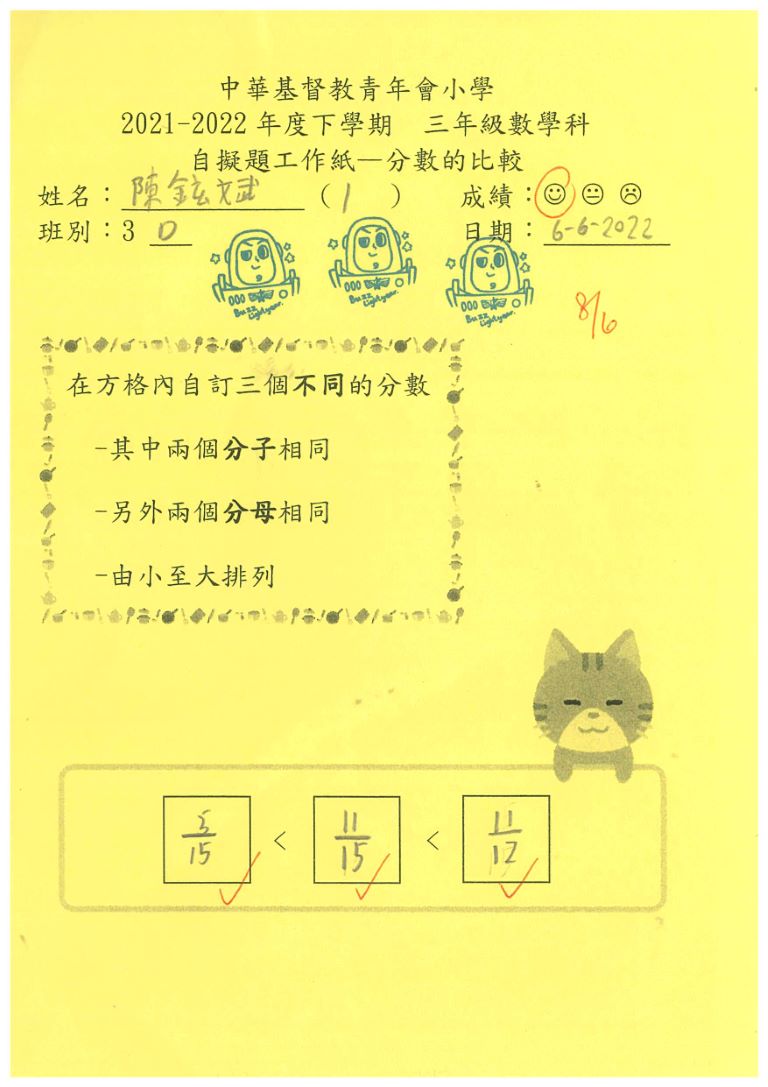 中華基督教青年會小學
2021-2022 年度下學期 三年級數學科
自擬題工作紙—分數的比較
姓名：陳鉉斌 (1) 成績：
班別：3 D 日期：6-6-2022
Buzz Lightyear.
Buzz Lightyear.
Buzz Lightyear.
8/6
在方格內自訂三個不同的分數
-其中兩個分子相同
-另外兩個分母相同
-由小至大排列
3/15 < 11/15 < 11/12